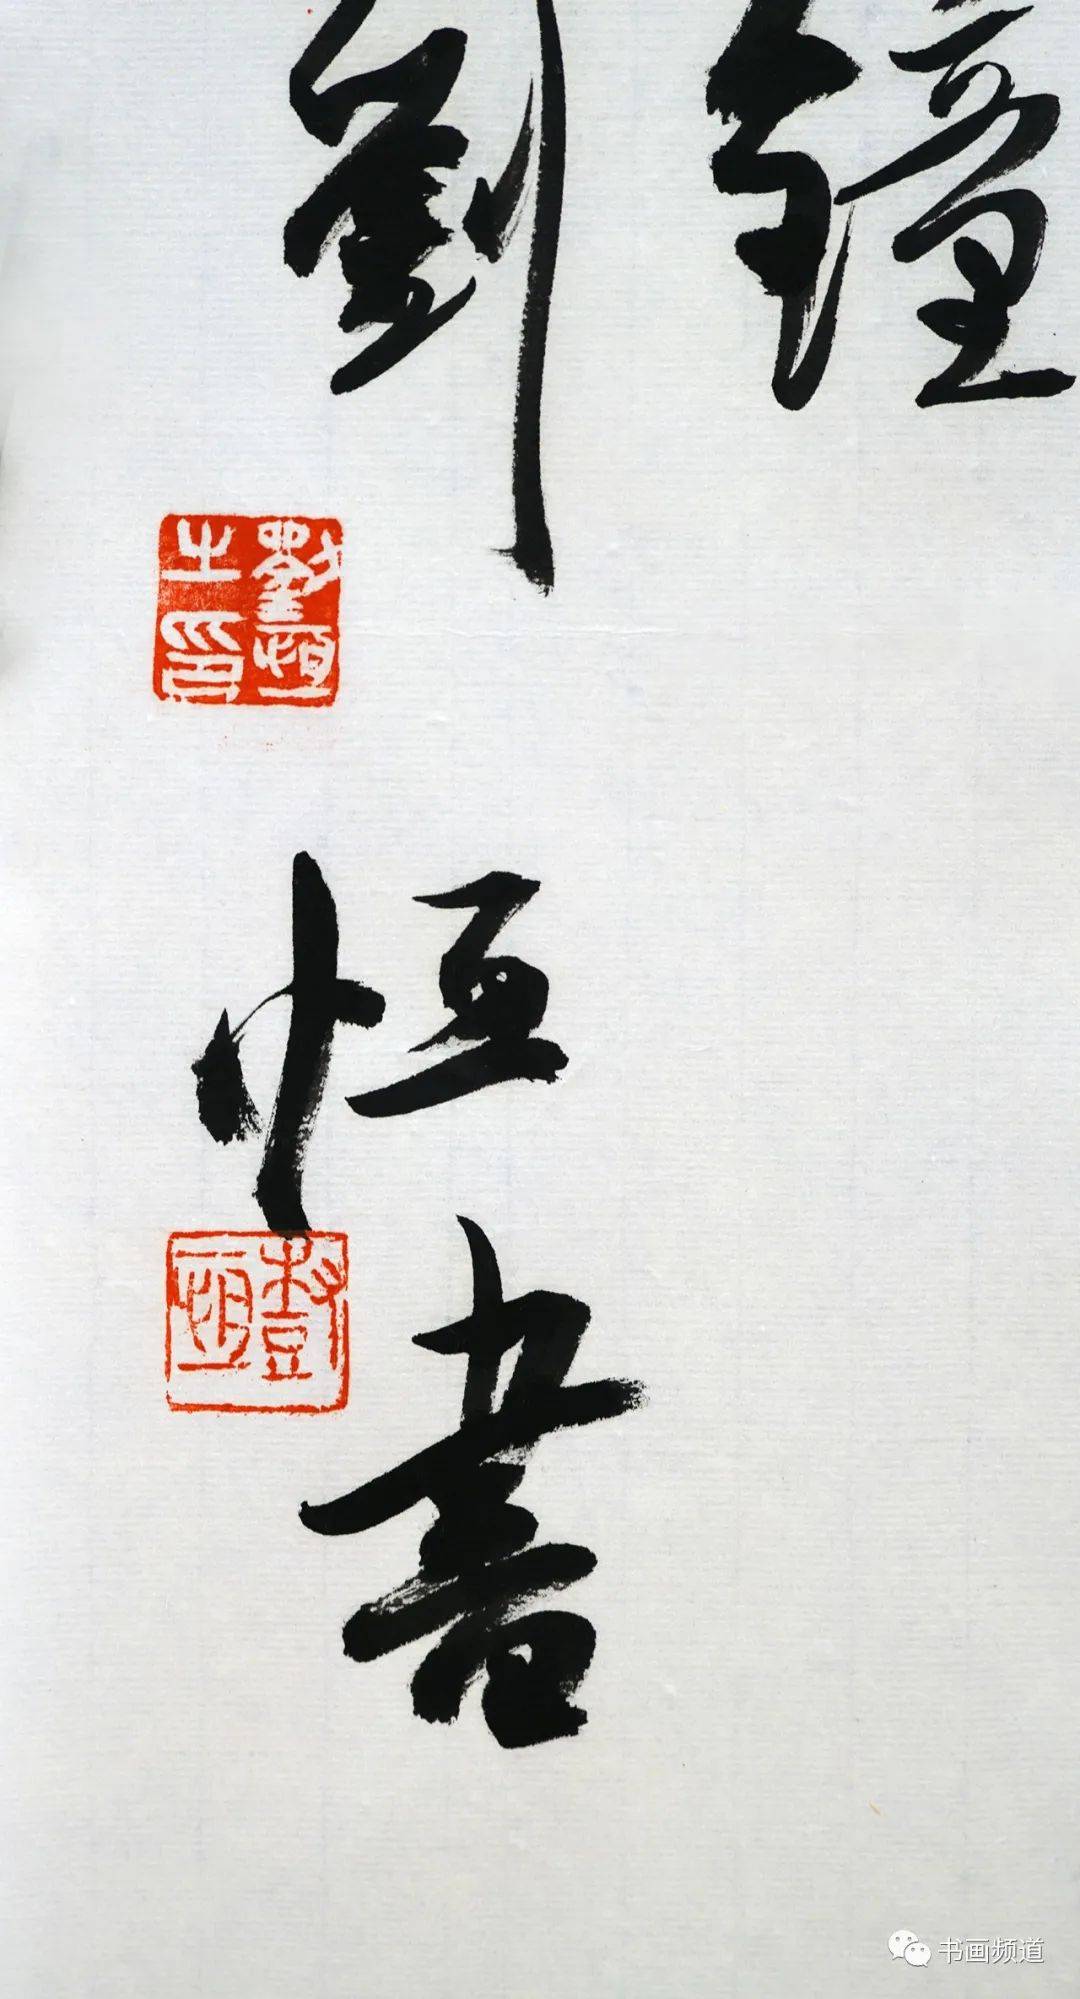 鐘
劉恒書
劉恒之印
书画频道